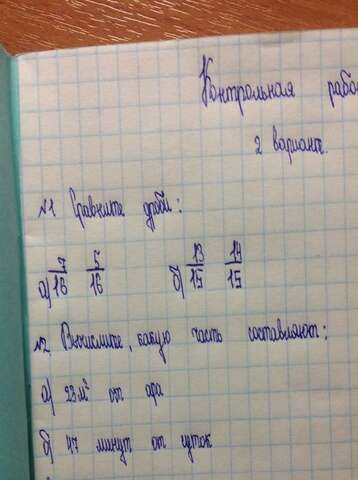 Контрольная рабо
2 вариант.
№1 Сравните дроби:
а) 7/16 5/16 б) 13/15 14/15
№2 Вычислите, какую часть составляют:
а) 23 м² от ара
б) 47 минут от суток